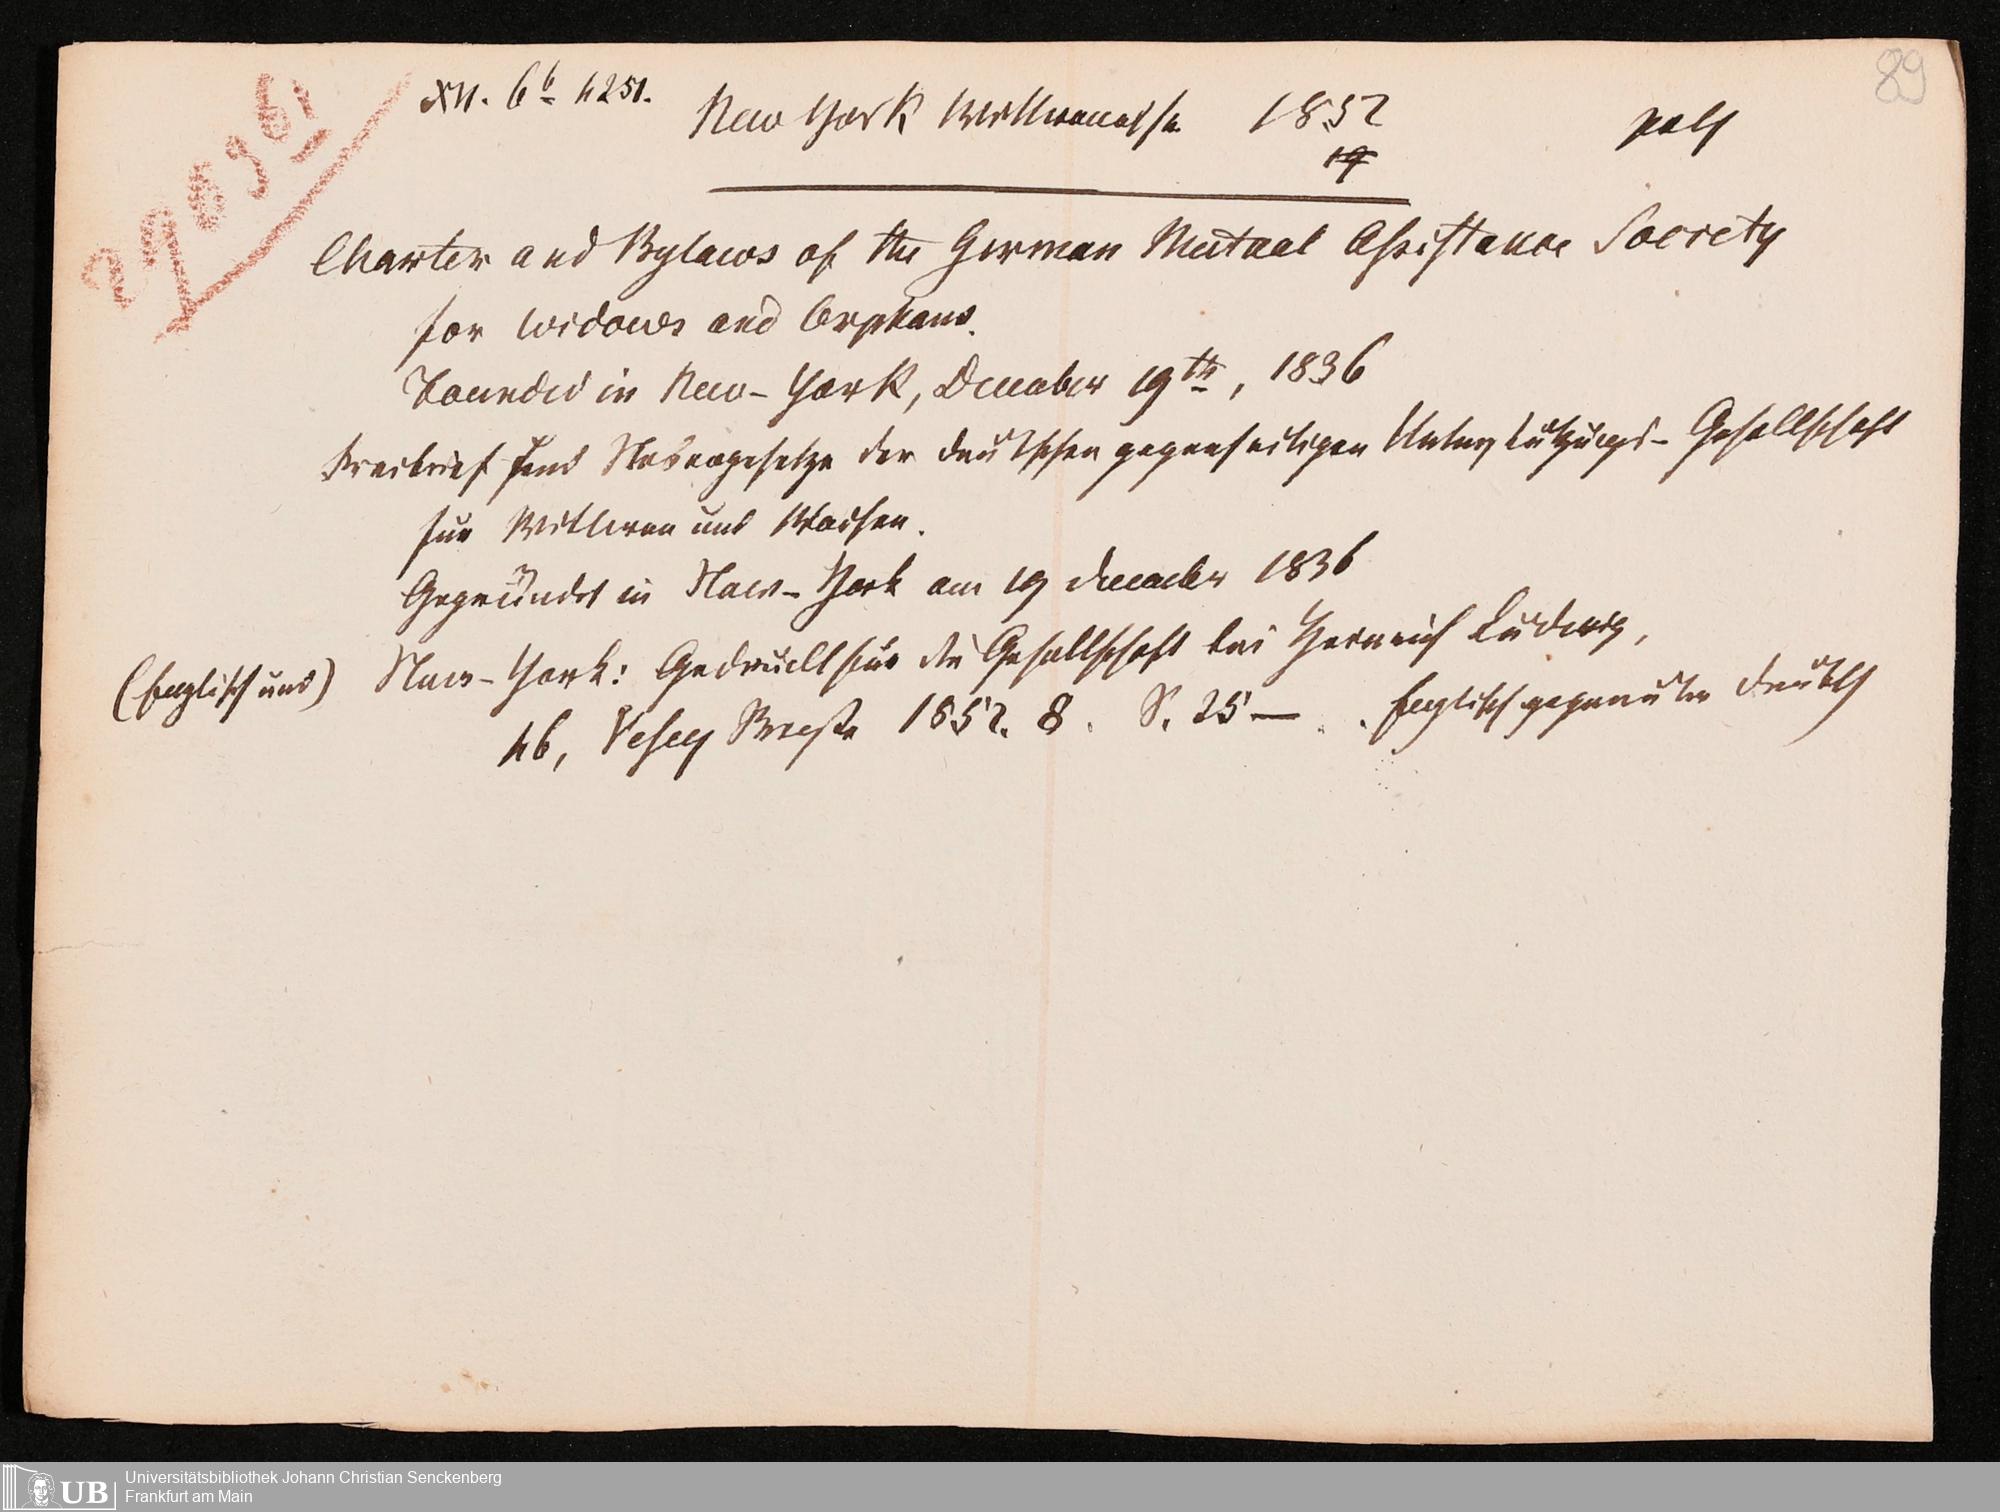 89
29036
XII. 6b 4251.
New York Wittwencasse 1852
19
Charter and Bylaws of the German Mutual Assistance Society
for Widows and Orphans.
Founded in New-York, December 19th, 1836
Freibrief und Nebengesetze der deutschen gegenseitigen Unterstützungs-Gesellschaft
für Wittwen und Waisen.
Gegründet in New-York am 19 December 1836
(Englisch und) New-York: Gedruckt für die Gesellschaft bei Heinrich Ludwig,
46, Vesey Strasse 1852. 8. S. 25 — Englisch gegenüber deutsch
Universitätsbibliothek Johann Christian Senckenberg
UB Frankfurt am Main